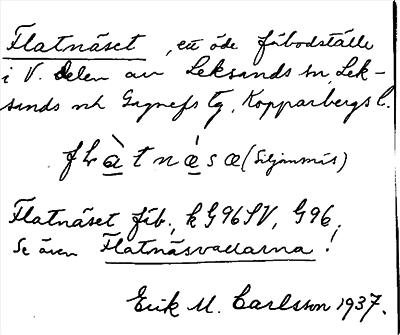 Flatnäset, ett öde fäbodställe
i V. delen av Leksands sn, Lek-
sands och Gagnefs tg, Kopparbergs l.
flàtnæ´sæ (Siljansnäs)
Flatnäset fäb., k G96SV, G96.
Se även Flatnäsvallarna!
Erik M. Carlsson 1937.